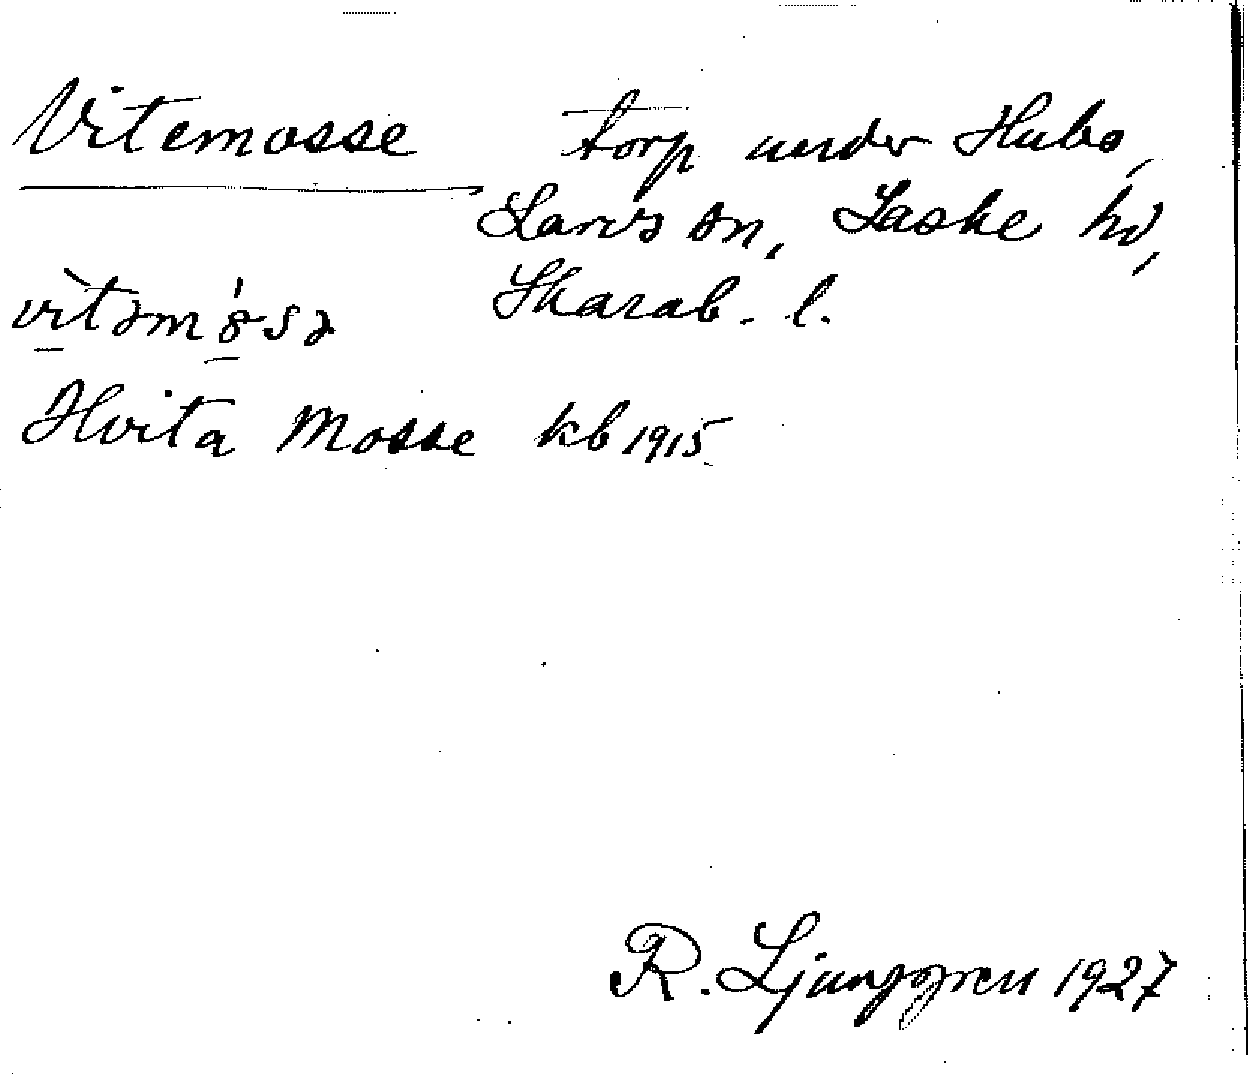 Vitemosse torp under Hubo,
Larvs sn, Laske hd,
vìtəmósə Skarab. l.
Hvita Mosse kb 1915
R. Ljunggren 1927